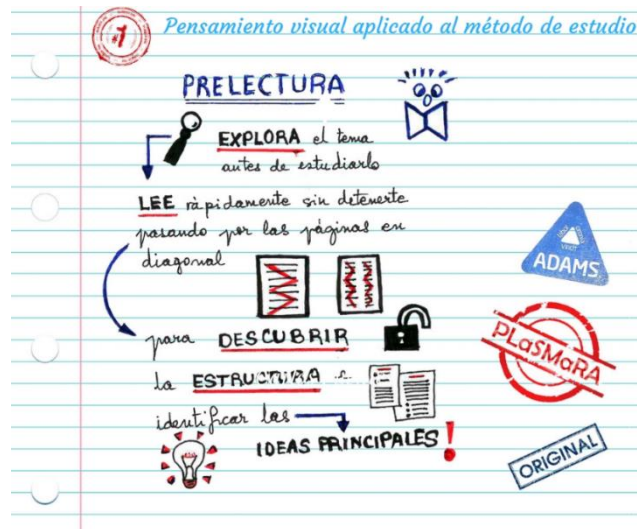 1
Pensamiento visual aplicado al método de estudio
PRELECTURA
EXPLORA el tema
antes de estudiarlo
LEE rápidamente sin detenerte
pasando por las páginas en
diagonal
para DESCUBRIR
la ESTRUCTURA e
identificar las
IDEAS PRINCIPALES!
ADAMS
PLaSMaRA
ORIGINAL